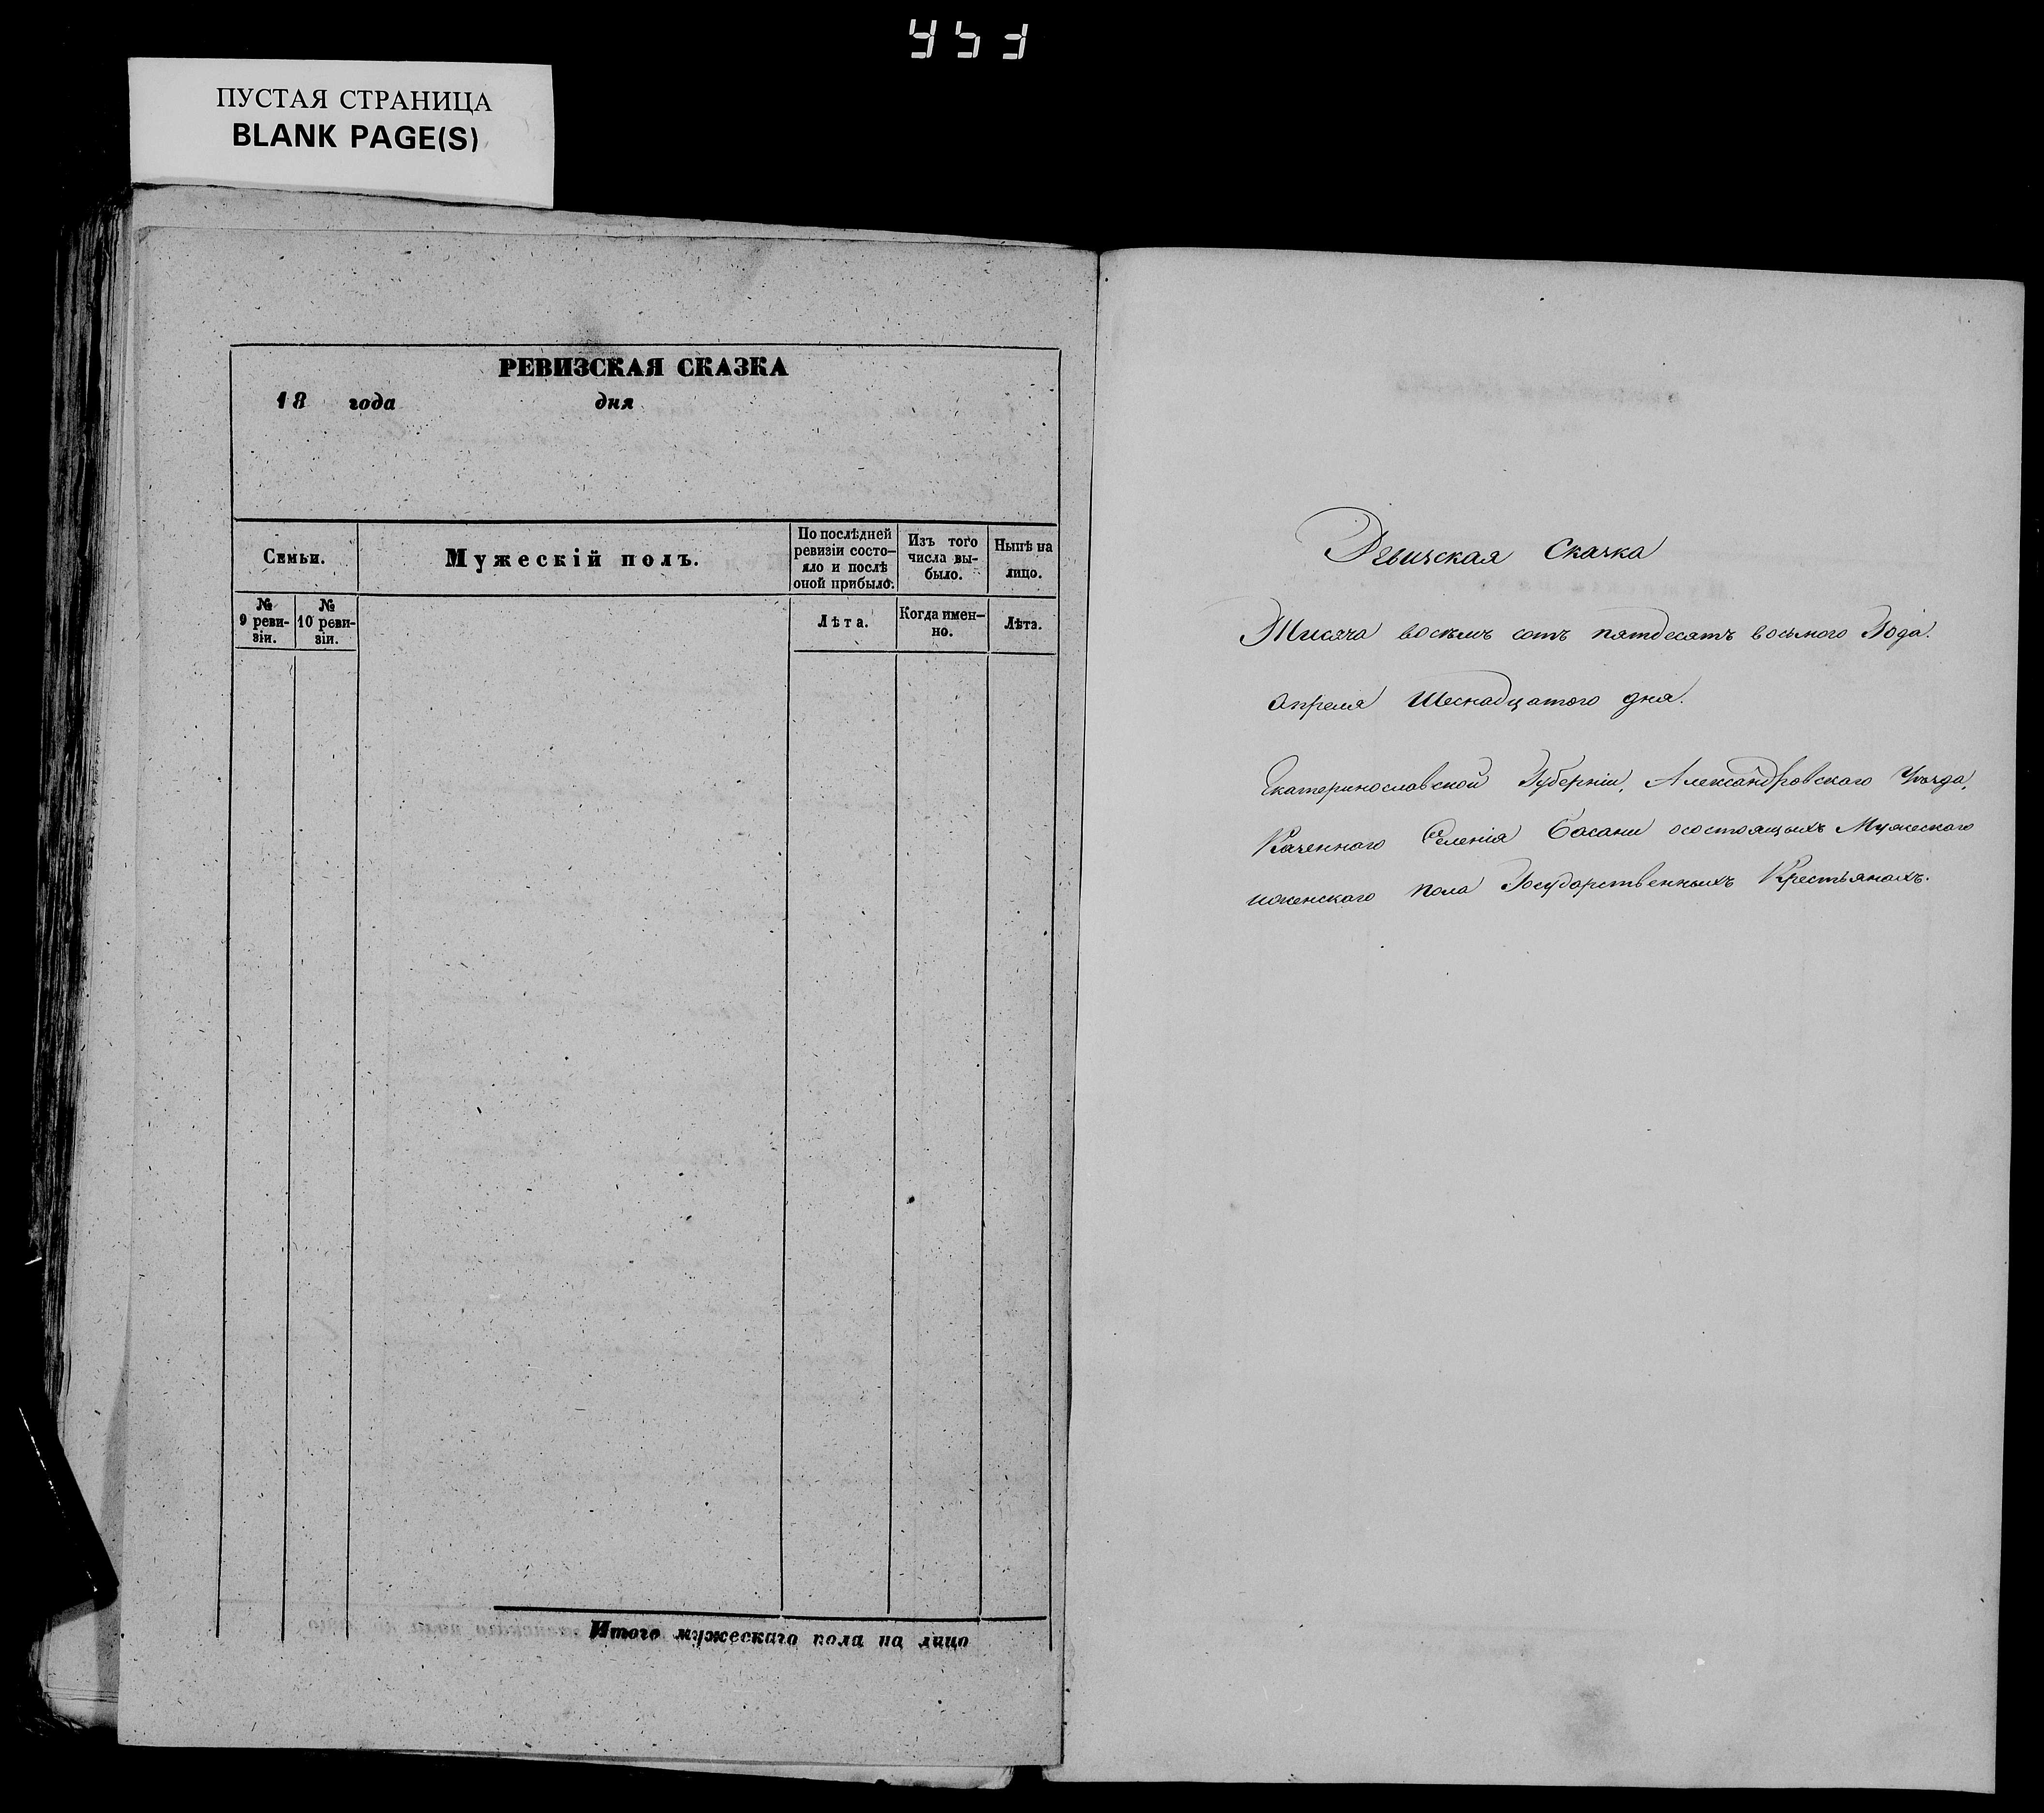 ПУСТАЯ СТРАНИЦА
BLANK PAGE(S)
РЕВИЗСКАЯ СКАЗКА
18 года дня
Семьи.
Мужескій полъ.
По послѣдней ревизіи состо-яло и послѣ оной прибыло.
Изъ того числа вы-было.
Нынѣ на лицо.
№ 9 реви-зіи.
№ 10 реви-зіи.
Лѣта.
Когда имен-но.
Лѣта.
Итого мужескаго пола на лицо
Ревизская Сказка
Тисяча восемь сотъ пятдесятъ восьмого Года.
Апреля Шеснадцатого дня.
Екатеринославской Губерніи, Александровского Уѣзда,
Казенного Селенія Басани осостоящыхъ Мужеского
иженского пола Государственныхъ Крестьянахъ.